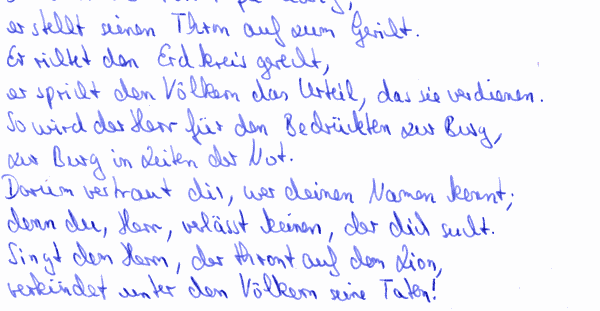 er stellt seinen Thron auf zum Gericht.
Er richtet den Erdkreis gerecht,
er spricht den Völkern das Urteil, das sie verdienen.
So wird der Herr für den Bedrückten zur Burg,
zur Burg in Zeiten der Not.
Darum vertraut dir, wer deinen Namen kennt;
denn du, Herr, verlässt keinen, der dich sucht.
Singt dem Herrn, der thront auf dem Zion,
verkündet unter den Völkern seine Taten!